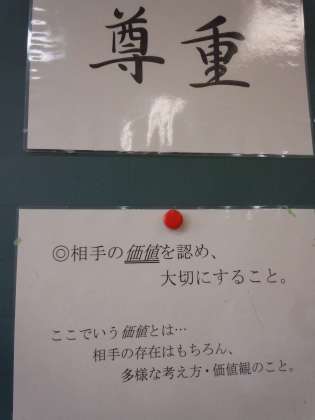 尊重
◎相手の価値を認め、
大切にすること。
ここでいう価値とは…
相手の存在はもちろん、
多様な考え方・価値観のこと。